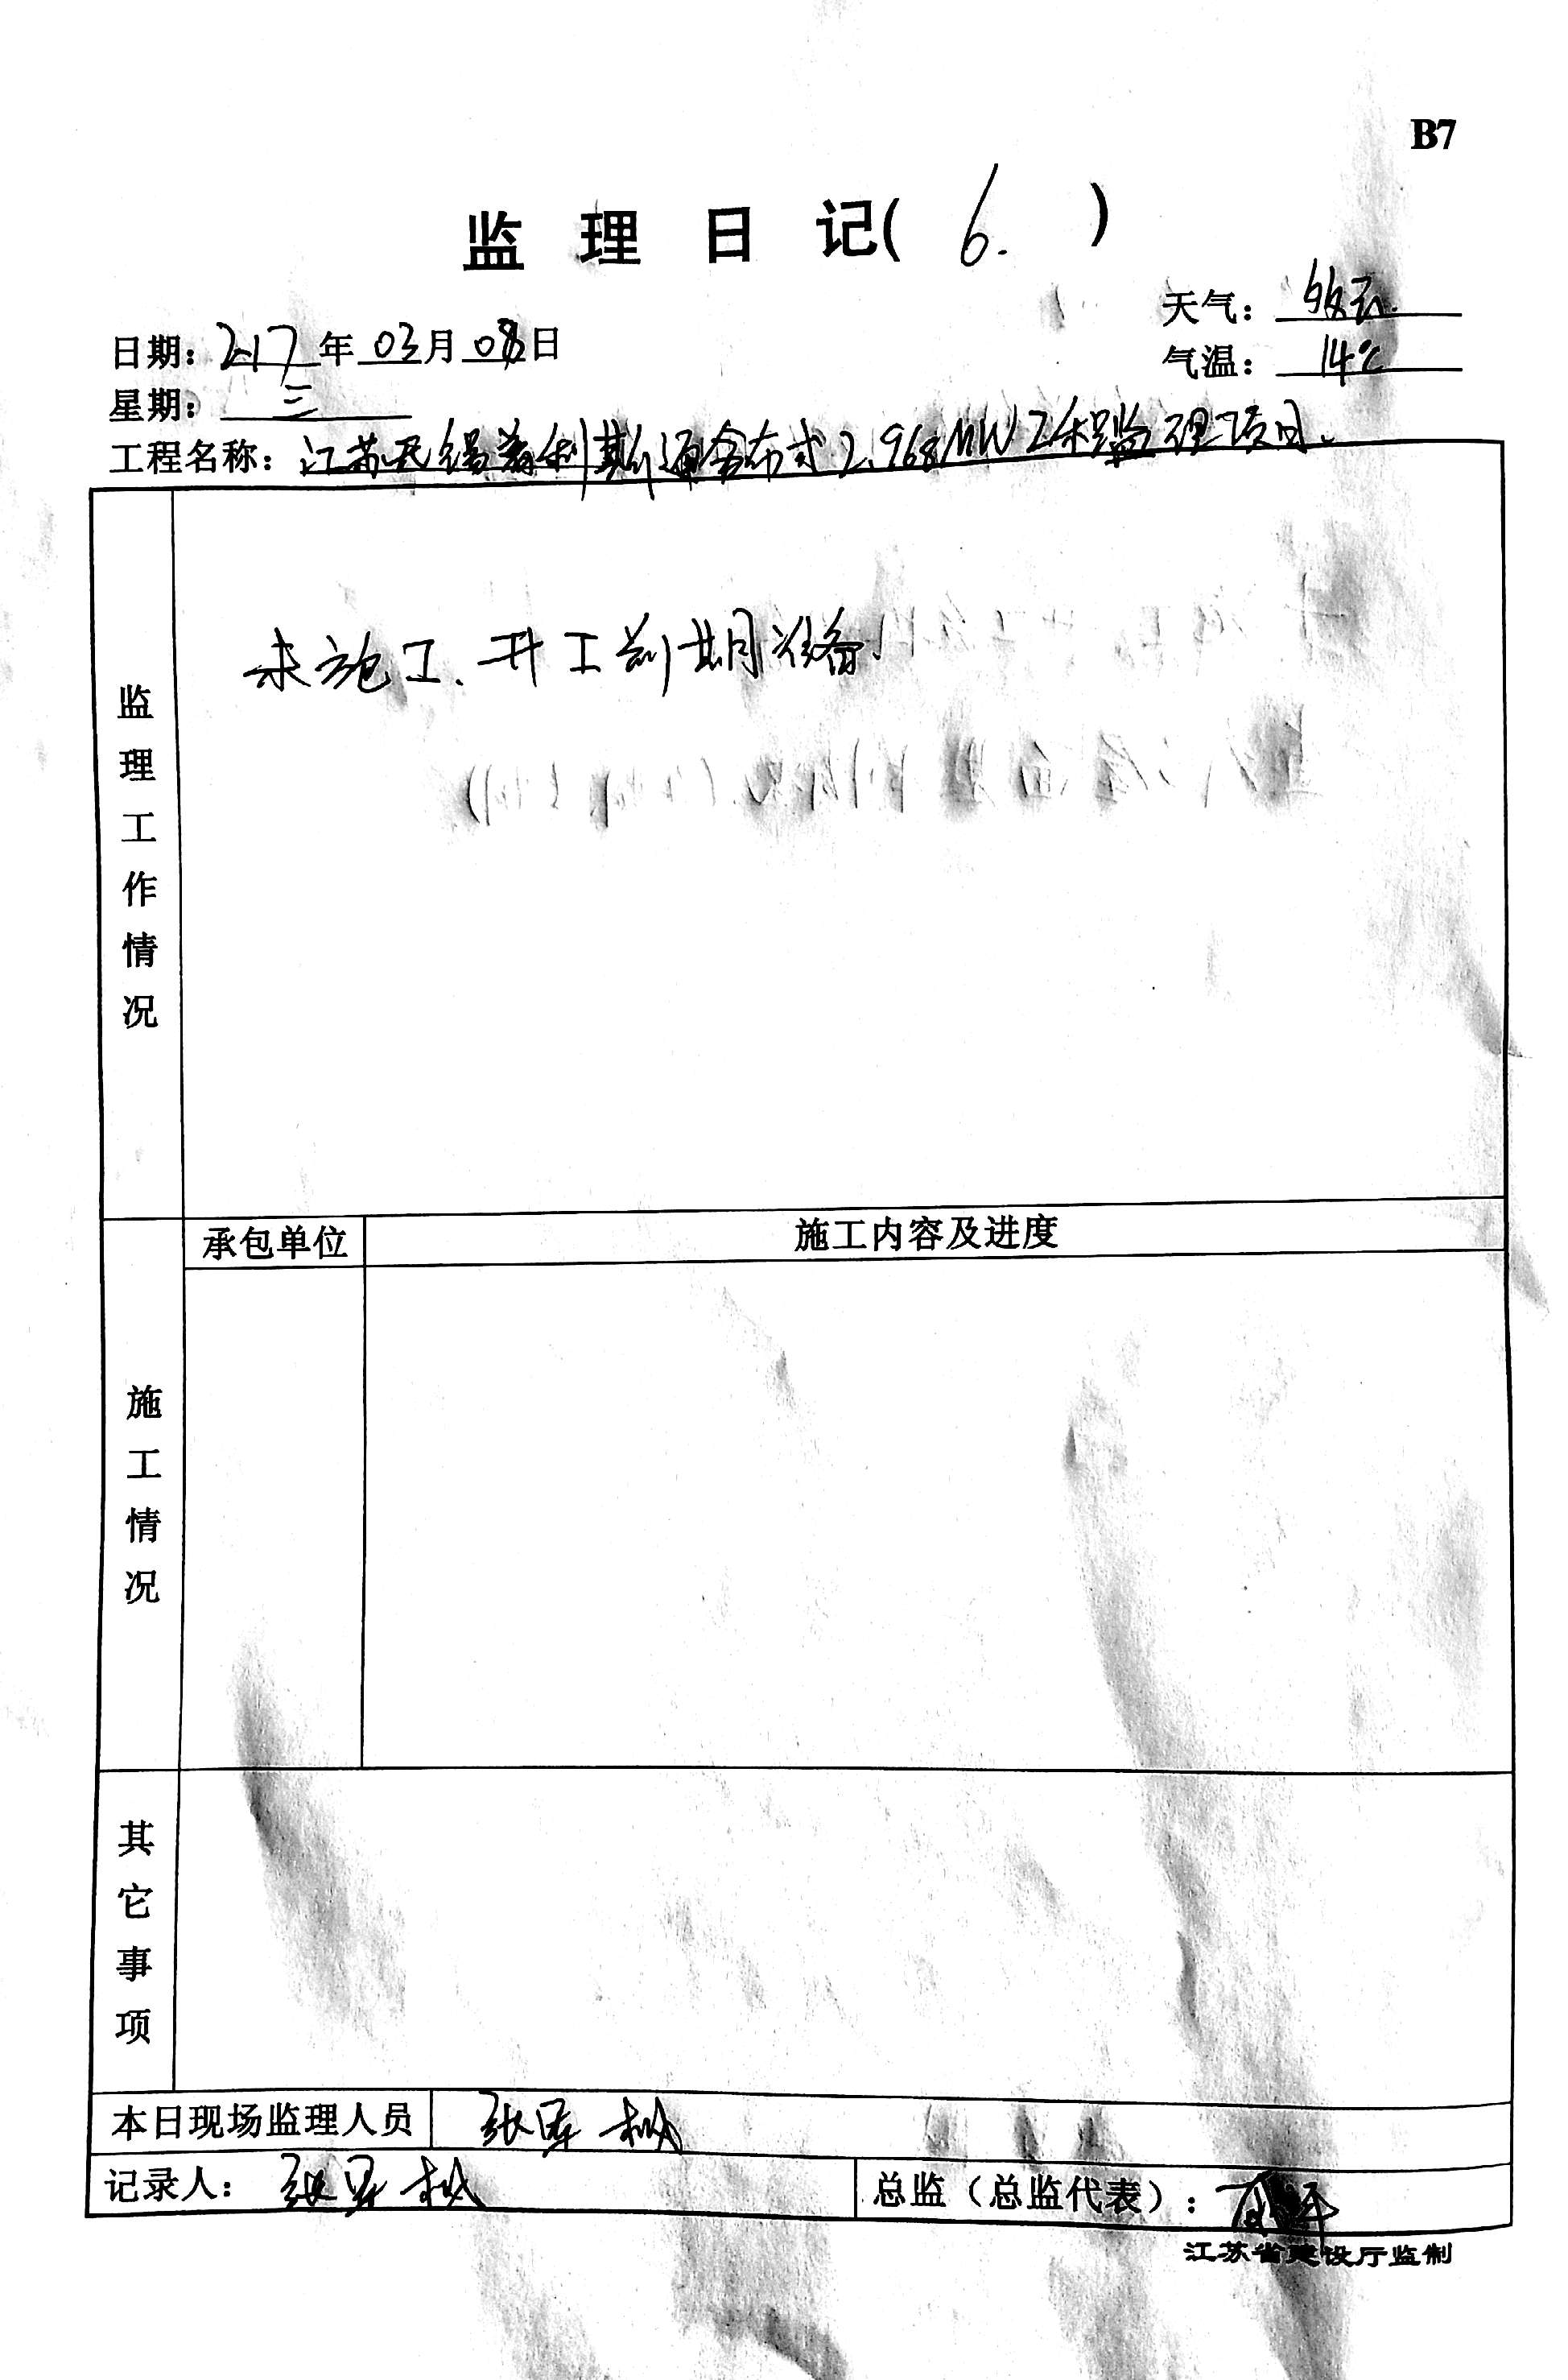 B7
监理日记( 6. )
天气: 多云.
日期: 2017年03月08日
气温: 14℃
星期: 三
工程名称: 江苏无锡普利斯通分布式2.968MW工程监理项目.
监理工作情况
未施工、开工前期准备.
承包单位 施工内容及进度
施工情况
其它事项
本日现场监理人员 张
记录人: 张
总监（总监代表）:
江苏省建设厅监制